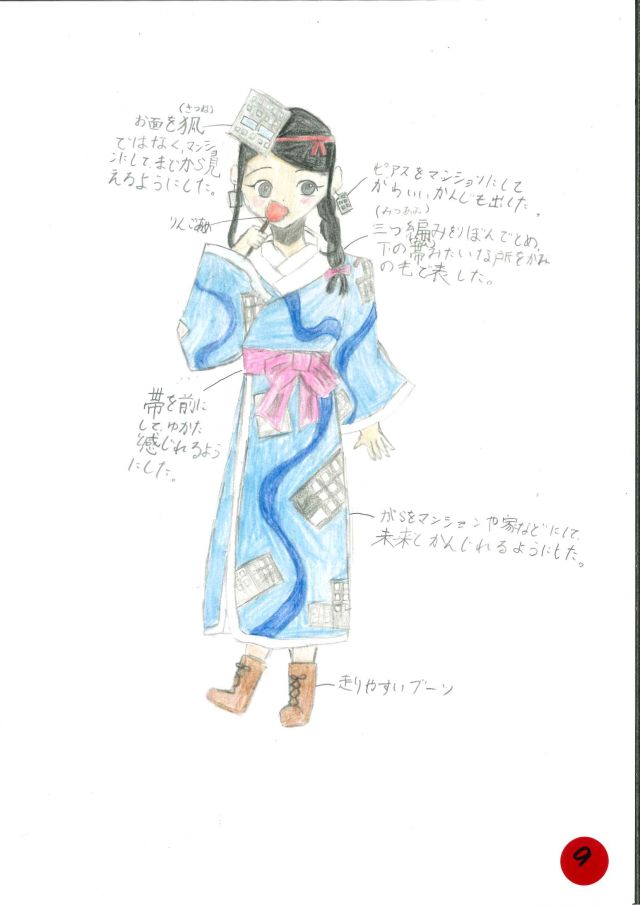 (きつね)
お面を狐
ではなく、マンショ
ンにして、まどから見
えるようにした。
ピアスをマンションにして
かわいいかんじも出した。
りんごあめ
(みつあみ)
三つ編みをりぼんでとめ、
下の帯みたいな所をかみ
の毛で表した。
帯を前に
して、ゆかた
と感じれるよう
にした。
がらをマンションや家などにして、
未来とかんじれるようにした。
走りやすいブーツ
9